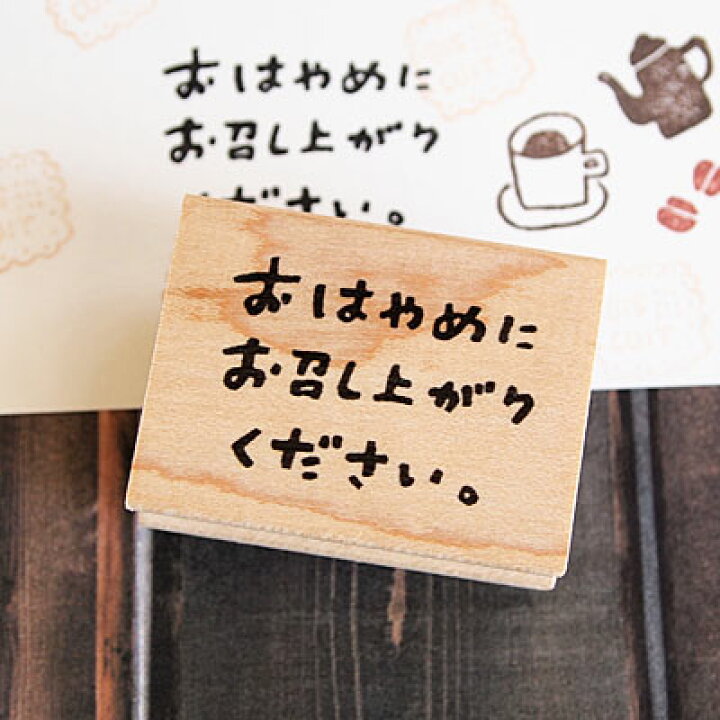 おはやめに
お召し上がり
ください。
おはやめに
お召し上がり
ください。